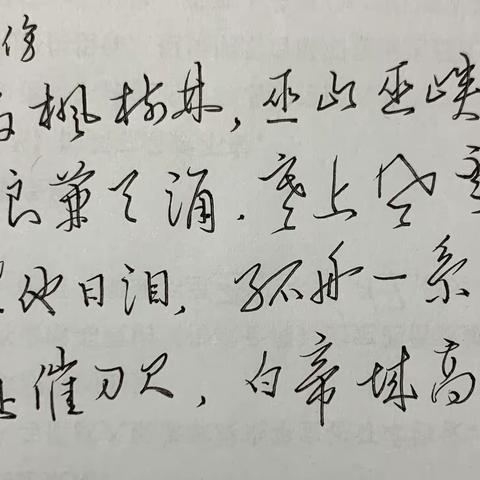 枫树林,巫山巫峡
浪兼天涌.塞上风云
他日泪,孤舟一系
催刀尺,白帝城高